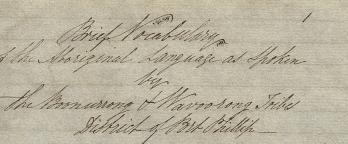 Brief Vocabulary
of the Aboriginal Language as Spoken
by
the Boonurrong & Wavoorong Tribes
District of Port Phillip
1